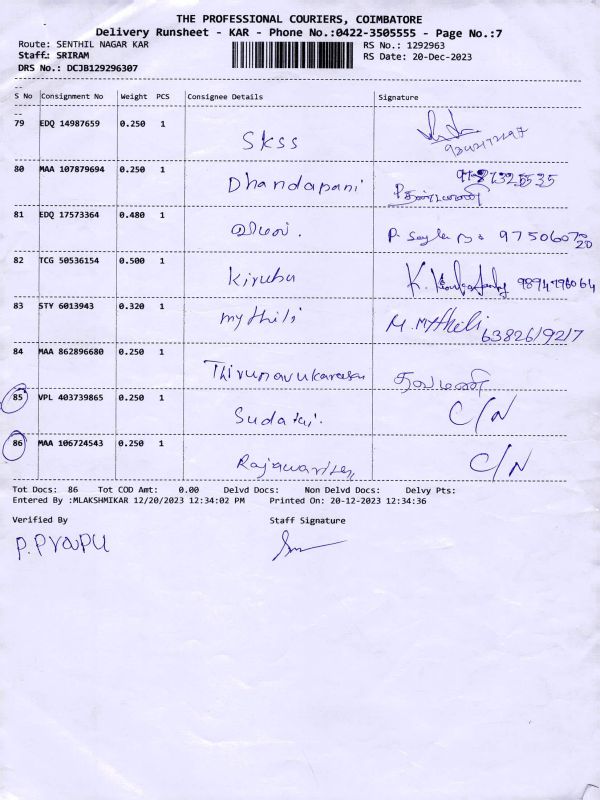 THE PROFESSIONAL COURIERS, COIMBATORE
Delivery Runsheet - KAR - Phone No.:0422-3505555 - Page No.:7
Route: SENTHIL NAGAR KAR RS No.: 1292963
Staff: SRIRAM RS Date: 20-Dec-2023
DRS No.: DCJB129296307
S No Consignment No Weight PCS Consignee Details Signature
79 EDQ 14987659 0.250 1
SKSS
80 MAA 107879694 0.250 1
Dhandapani
81 EDQ 17573364 0.480 1
விமல். 9750607020
82 TCG 50536154 0.500 1
Kiruba K.
83 STY 6013943 0.320 1
mythili M. Mythili 6382619217
84 MAA 862896680 0.250 1
Thirunavukarasu தவமணி
85 VPL 403739865 0.250 1
C/N
86 MAA 106724543 0.250 1
C/N
Tot Docs: 86 Tot COD Amt: 0.00 Delvd Docs: Non Delvd Docs: Delvy Pts:
Entered By :MLAKSHMIKAR 12/20/2023 12:34:02 PM Printed On: 20-12-2023 12:34:36
Verified By Staff Signature
P.